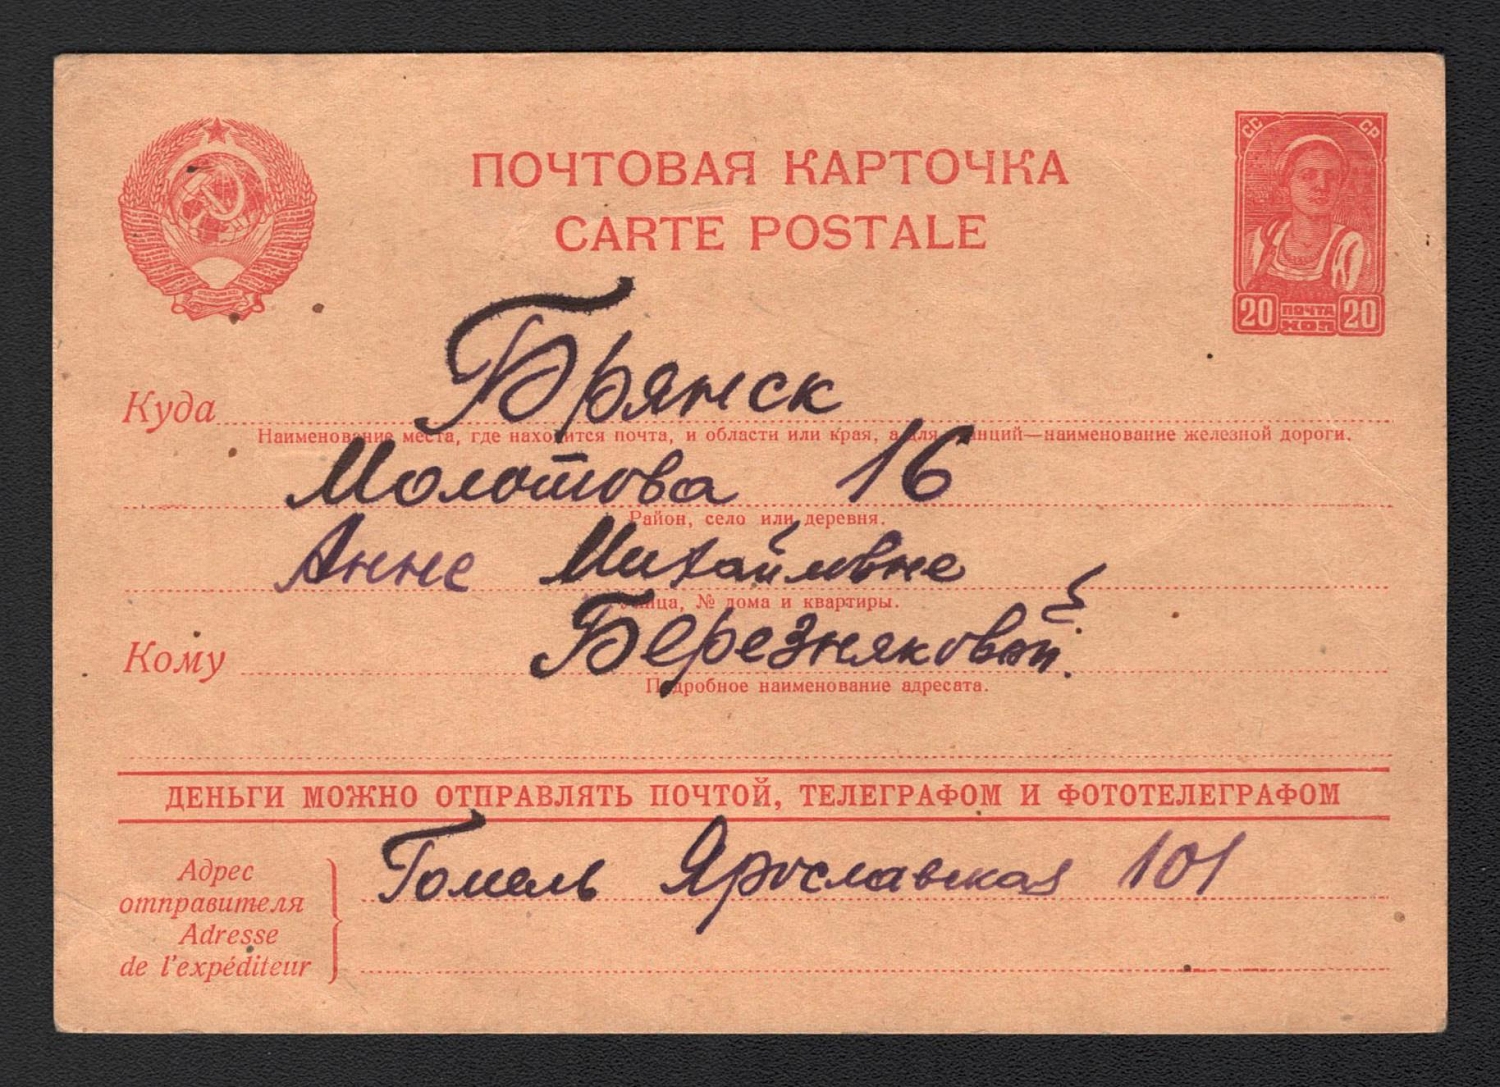 ПОЧТОВАЯ КАРТОЧКА
CARTE POSTALE
СС СР
20 ПОЧТА КОП 20
Куда Брянск
Наименование места, где находится почта, и области или края, а для станций—наименование железной дороги.
Молотова 16
Район, село или деревня.
Анне Михайловне
Улица, № дома и квартиры.
Кому Березняковой
Подробное наименование адресата.
ДЕНЬГИ МОЖНО ОТПРАВЛЯТЬ ПОЧТОЙ, ТЕЛЕГРАФОМ И ФОТОТЕЛЕГРАФОМ
Адрес отправителя
Adresse de l'expéditeur
Гомель Ярославская 101